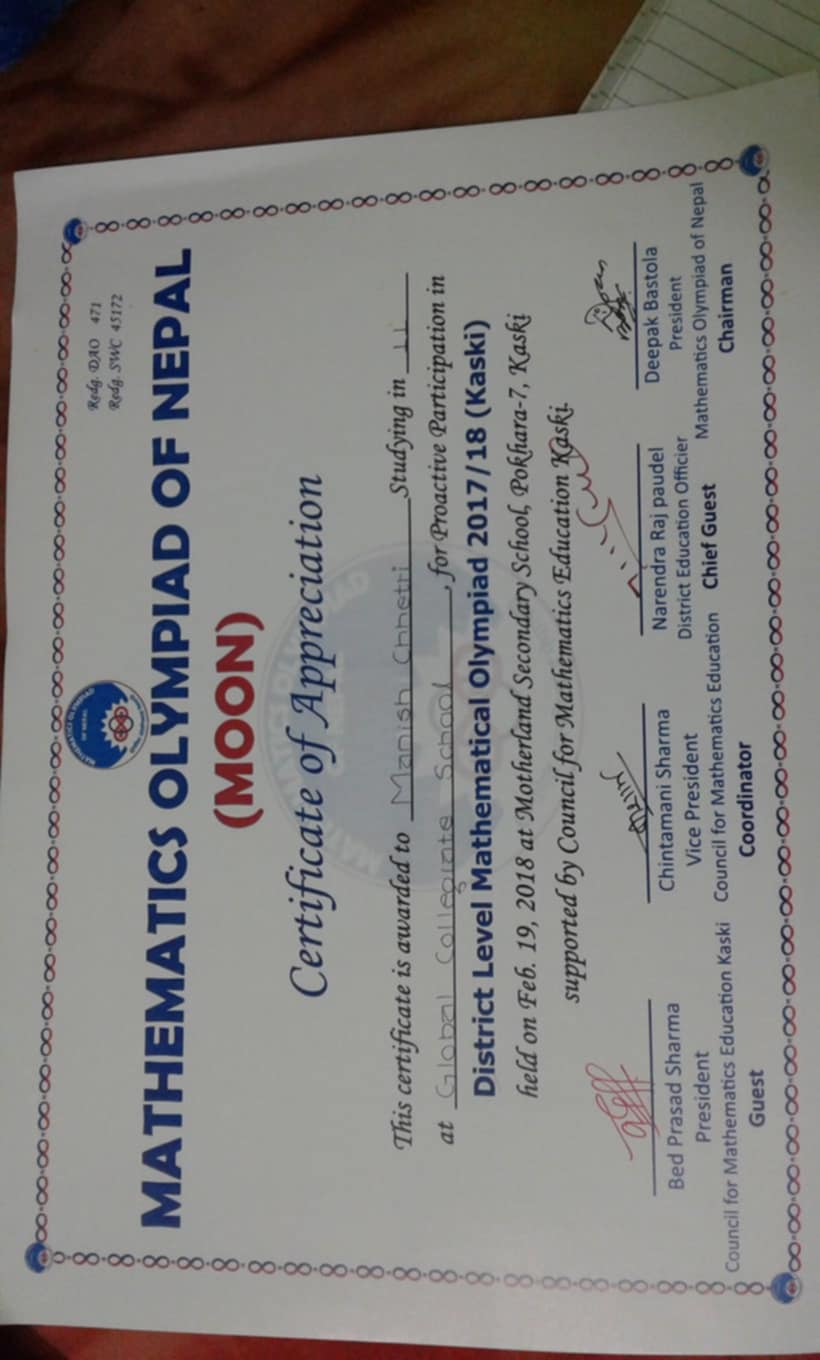 Redg. DAO 471
Redg. SWC 45172
MATHEMATICS OLYMPIAD OF NEPAL
(MOON)
Certificate of Appreciation
This certificate is awarded to Manish Chhetri Studying in 11
at Global Collegiate School, for Proactive Participation in
District Level Mathematical Olympiad 2017/18 (Kaski)
held on Feb. 19, 2018 at Motherland Secondary School, Pokhara-7, Kaski
supported by Council for Mathematics Education Kaski.
Bed Prasad Sharma
President
Council for Mathematics Education Kaski
Guest
Chintamani Sharma
Vice President
Council for Mathematics Education
Coordinator
Narendra Raj paudel
District Education Officier
Chief Guest
Deepak Bastola
President
Mathematics Olympiad of Nepal
Chairman